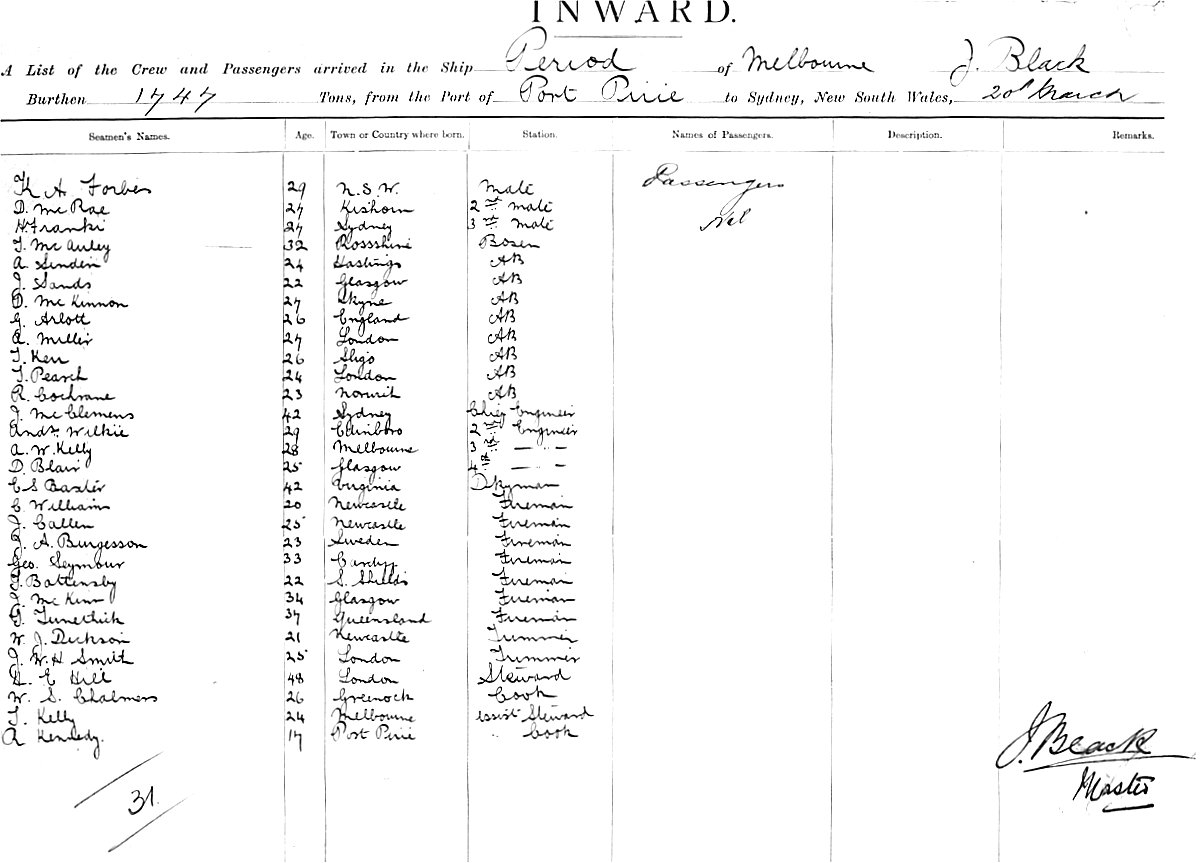 INWARD.
A List of the Crew and Passengers arrived in the Ship Period of Melbourne J. Black
Burthen 1747 Tons, from the Port of Port Pirie to Sydney, New South Wales, 20th March
Seamen's Names. Age. Town or Country where born. Station. Names of Passengers. Description. Remarks.
K A Forbes 29 N.S.W. Mate Passengers
D. McRae 27 Kishorn 2nd Mate
H Franki 27 Sydney 3rd Mate Nil
T. McAuley 32 Rossshire Bosen
A. Sinden 24 Hastings AB
J. Sands 22 Glasgow AB
D. McKinnon 27 Skyne AB
G. Arlott 26 England AB
A. Miller 27 London AB
T. Kerr 26 Sligo AB
T. Pearch 24 London AB
R. Cochrane 23 Norwich AB
J. McClemens 42 Sydney Chief Engineer
Andr. Wilkie 29 Edinboro 2nd Engineer
A. W. Kelly 28 Melbourne 3rd — " —
D. Blair 25 Glasgow 4th — " —
C S Baxter 42 Virginia Dkyman
C. Williams 20 Newcastle Fireman
J. Callen 25 Newcastle Fireman
J. A. Burgesson 23 Sweden Fireman
Geo. Seymour 33 Cardiff Fireman
T. Battensby 22 S. Shields Fireman
J. McKinn 34 Glasgow Fireman
G. 37 Queensland Fireman
W. J. Dickson 21 Newcastle Trimmer
J. W. H Smith 25 London Trimmer
H. E Hill 48 London Steward
W. S. Chalmers 26 Greenock Cook
T. Kelly 24 Melbourne assist Steward
A Kennedy. 17 Port Pirie " Cook
J. Black
Master
31.